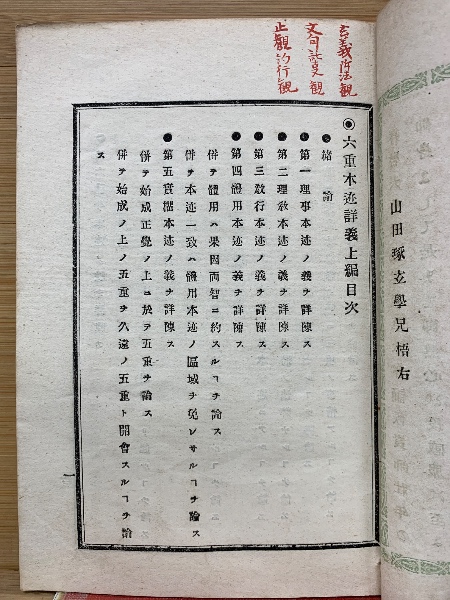 玄義附法觀
文句託事觀
止觀約行觀
山田琢立學兄梧右
◉六重本迹詳義上編目次
緒論
第一理事本迹ノ義ヲ詳陳ス
第二理敎本迹ノ義ヲ詳陳ス
第三敎行本迹ノ義ヲ詳陳ス
第四體用本迹ノ義ヲ詳陳ス
併テ體用ハ果因兩智ニ約スルヿヲ論ス
併テ本迹一致ハ體用本迹ノ區域ヲ免レサルヿヲ論ス
第五實權本迹ノ義ヲ詳陳ス
併テ始成正覺ノ上ニ於テ五重ヲ論ス
併テ始成ノ上ノ五重ヲ久遠ノ五重ト開會スルヿヲ論
ス
一